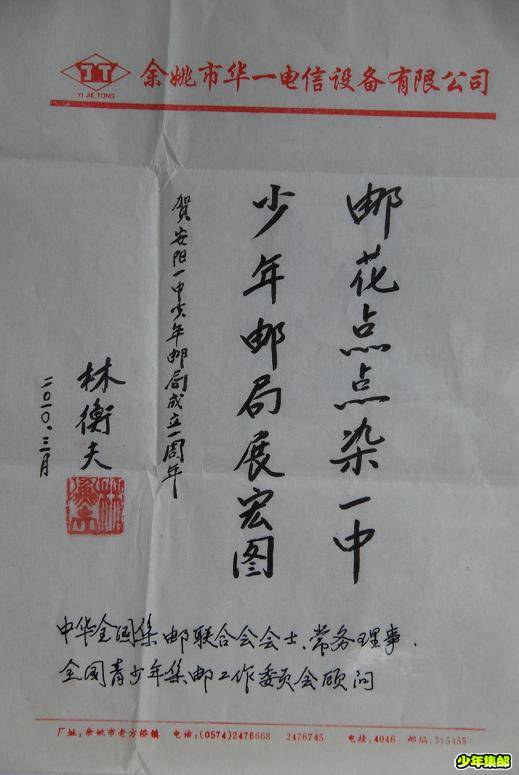 余姚市华一电信设备有限公司
YI JIE TONG
邮花点点染一中
少年邮局展宏图
贺安阳一中少年邮局成立一周年
林衡夫
二〇一〇.三月
中华全国集邮联合会会士、常务理事.
全国青少年集邮工作委员会顾问
厂址:余姚市老方桥镇 电话:(0574)2476668 2476745 电挂:4046 邮编:315455
少年集邮